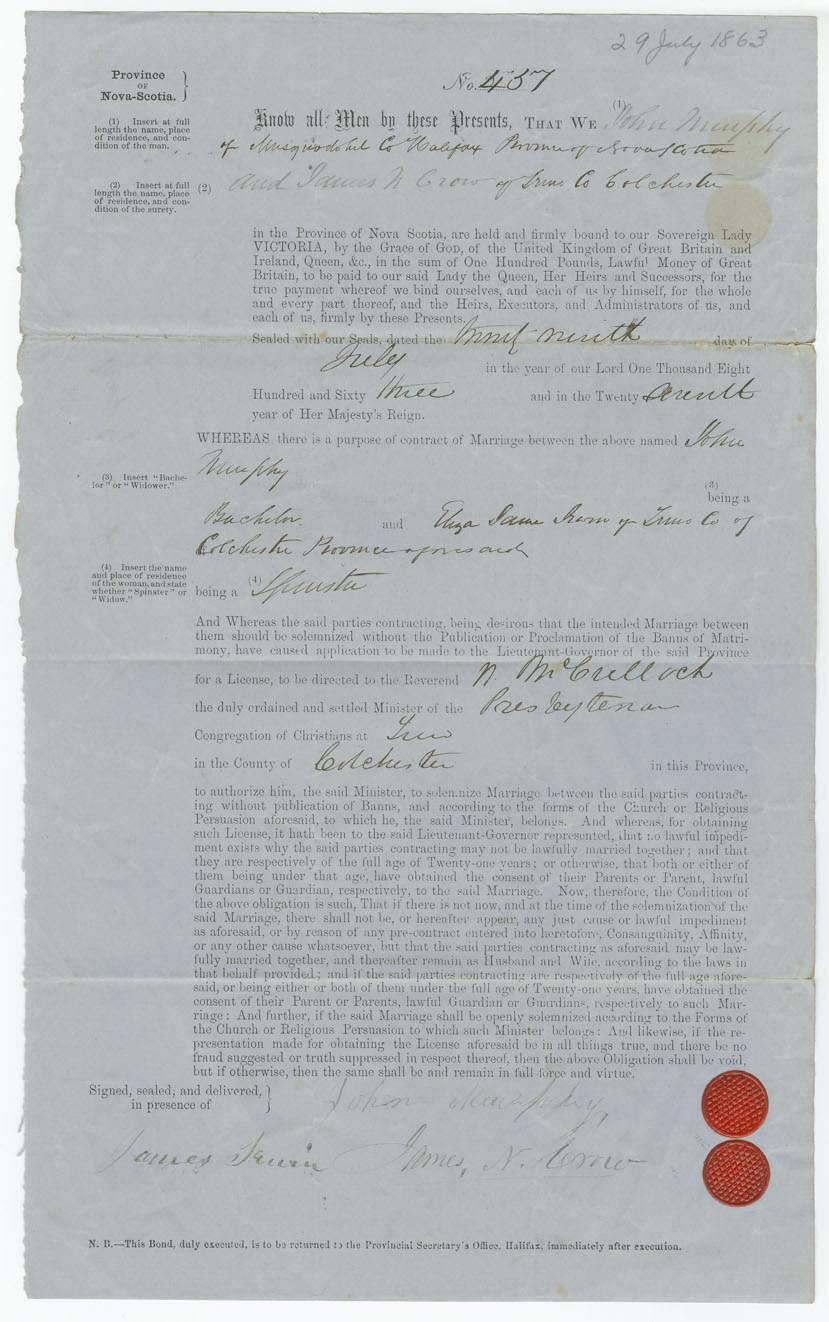 29 July 1863
Province
OF
Nova-Scotia.
No. 437
(1) Insert at full
length the name, place
of residence, and con-
dition of the man.
Know all Men by these Presents, THAT WE (1) John Murphy
of Musquodobit Co Halifax Province of Nova Scotia
(2) Insert at full
length the name, place
of residence, and con-
dition of the surety.
(2) and James N Crow of Truro Co Colchester
in the Province of Nova Scotia, are held and firmly bound to our Sovereign Lady
VICTORIA, by the Grace of GOD, of the United Kingdom of Great Britain and
Ireland, Queen, &c., in the sum of One Hundred Pounds, Lawful Money of Great
Britain, to be paid to our said Lady the Queen, Her Heirs and Successors, for the
true payment whereof we bind ourselves, and each of us by himself, for the whole
and every part thereof, and the Heirs, Executors, and Administrators of us, and
each of us, firmly by these Presents.
Sealed with our Seals, dated the ninth day of
July in the year of our Lord One Thousand Eight
Hundred and Sixty three and in the Twenty
year of Her Majesty's Reign.
WHEREAS there is a purpose of contract of Marriage between the above named John
Murphy
(3) Insert "Bache-
lor" or "Widower."
(3)
being a
Bachelor and Eliza Jane of Truro Co of
Colchester Province aforesaid
(4) Insert the name
and place of residence
of the woman, and state
whether "Spinster" or
"Widow."
being a (4) Spinster
And Whereas the said parties contracting, being desirous that the intended Marriage between
them should be solemnized without the Publication or Proclamation of the Banns of Matri-
mony, have caused application to be made to the Lieutenant-Governor of the said Province
for a License, to be directed to the Reverend N. McCulloch
the duly ordained and settled Minister of the Presbyterian
Congregation of Christians at Truro
in the County of Colchester in this Province,
to authorize him, the said Minister, to solemnize Marriage between the said parties contract-
ing without publication of Banns, and according to the forms of the Church or Religious
Persuasion aforesaid, to which he, the said Minister, belongs. And whereas, for obtaining
such License, it hath been to the said Lieutenant-Governor represented, that no lawful impedi-
ment exists why the said parties contracting may not be lawfully married together; and that
they are respectively of the full age of Twenty-one years; or otherwise, that both or either of
them being under that age, have obtained the consent of their Parents or Parent, lawful
Guardians or Guardian, respectively, to the said Marriage. Now, therefore, the Condition of
the above obligation is such, That if there is not now, and at the time of the solemnization of the
said Marriage, there shall not be, or hereafter appear, any just cause or lawful impediment
as aforesaid, or by reason of any pre-contract entered into heretofore, Consanguinity, Affinity,
or any other cause whatsoever, but that the said parties contracting as aforesaid may be law-
fully married together, and thereafter remain as Husband and Wife, according to the laws in
that behalf provided; and if the said parties contracting are respectively of the full age afore-
said, or being either or both of them under the full age of Twenty-one years, have obtained the
consent of their Parent or Parents, lawful Guardian or Guardians, respectively to such Mar-
riage: And further, if the said Marriage shall be openly solemnized according to the Forms of
the Church or Religious Persuasion to which such Minister belongs: And likewise, if the re-
presentation made for obtaining the License aforesaid be in all things true, and there be no
fraud suggested or truth suppressed in respect thereof, then the above Obligation shall be void,
but if otherwise, then the same shall be and remain in full force and virtue.
Signed, sealed, and delivered,
in presence of
John Murphy,
James James, N. Crow
N. B.—This Bond, duly executed, is to be returned to the Provincial Secretary's Office, Halifax, immediately after execution.